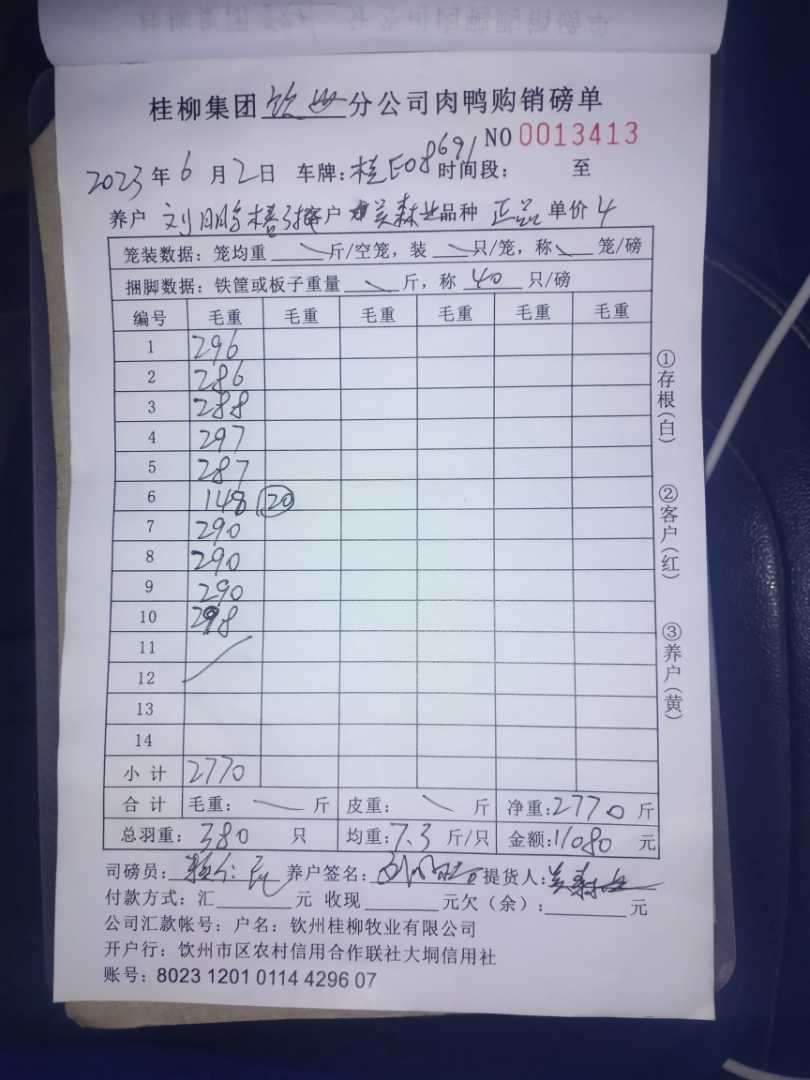 桂柳集团 钦州 分公司肉鸭购销磅单
NO 0013413
2023年6月2日 车牌:桂E08691 时间段: 至
养户 刘鹏 客户 吴森业 品种 正品 单价 4
笼装数据:笼均重 斤/空笼,装 只/笼,称 笼/磅
捆脚数据:铁筐或板子重量 斤,称 40 只/磅
编号 毛重 毛重 毛重 毛重 毛重 毛重
1 296
2 286
3 288
4 297
5 287
6 148 20
7 290
8 290
9 290
10 298
11
12
13
14
小计 2770
合计 毛重: 斤 皮重: 斤 净重:2770 斤
总羽重:380 只 均重:7.3 斤/只 金额:11080 元
司磅员: 养户签名: 提货人:吴森业
付款方式:汇 元 收现 元欠(余): 元
公司汇款帐号:户名:钦州桂柳牧业有限公司
开户行:钦州市区农村信用合作联社大垌信用社
账号:8023 1201 0114 4296 07
①存根(白)
②客户(红)
③养户(黄)